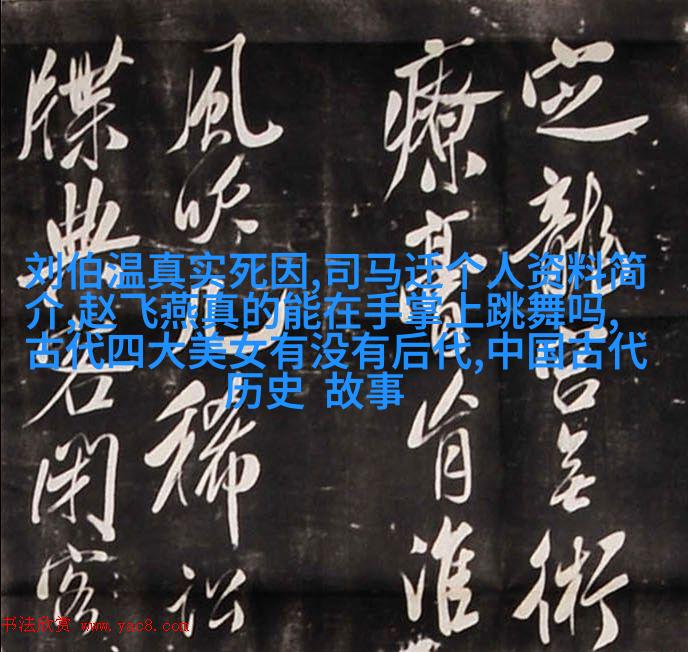 龍宮無術
療膏肓淮
風吹稀訟
牒典客
刘伯温真实死因,司马迁个人资料简
介,赵飞燕真的能在手掌上跳舞吗,
古代四大美女有没有后代,中国古代
历史 故事
书法欣赏 www.yac8.com